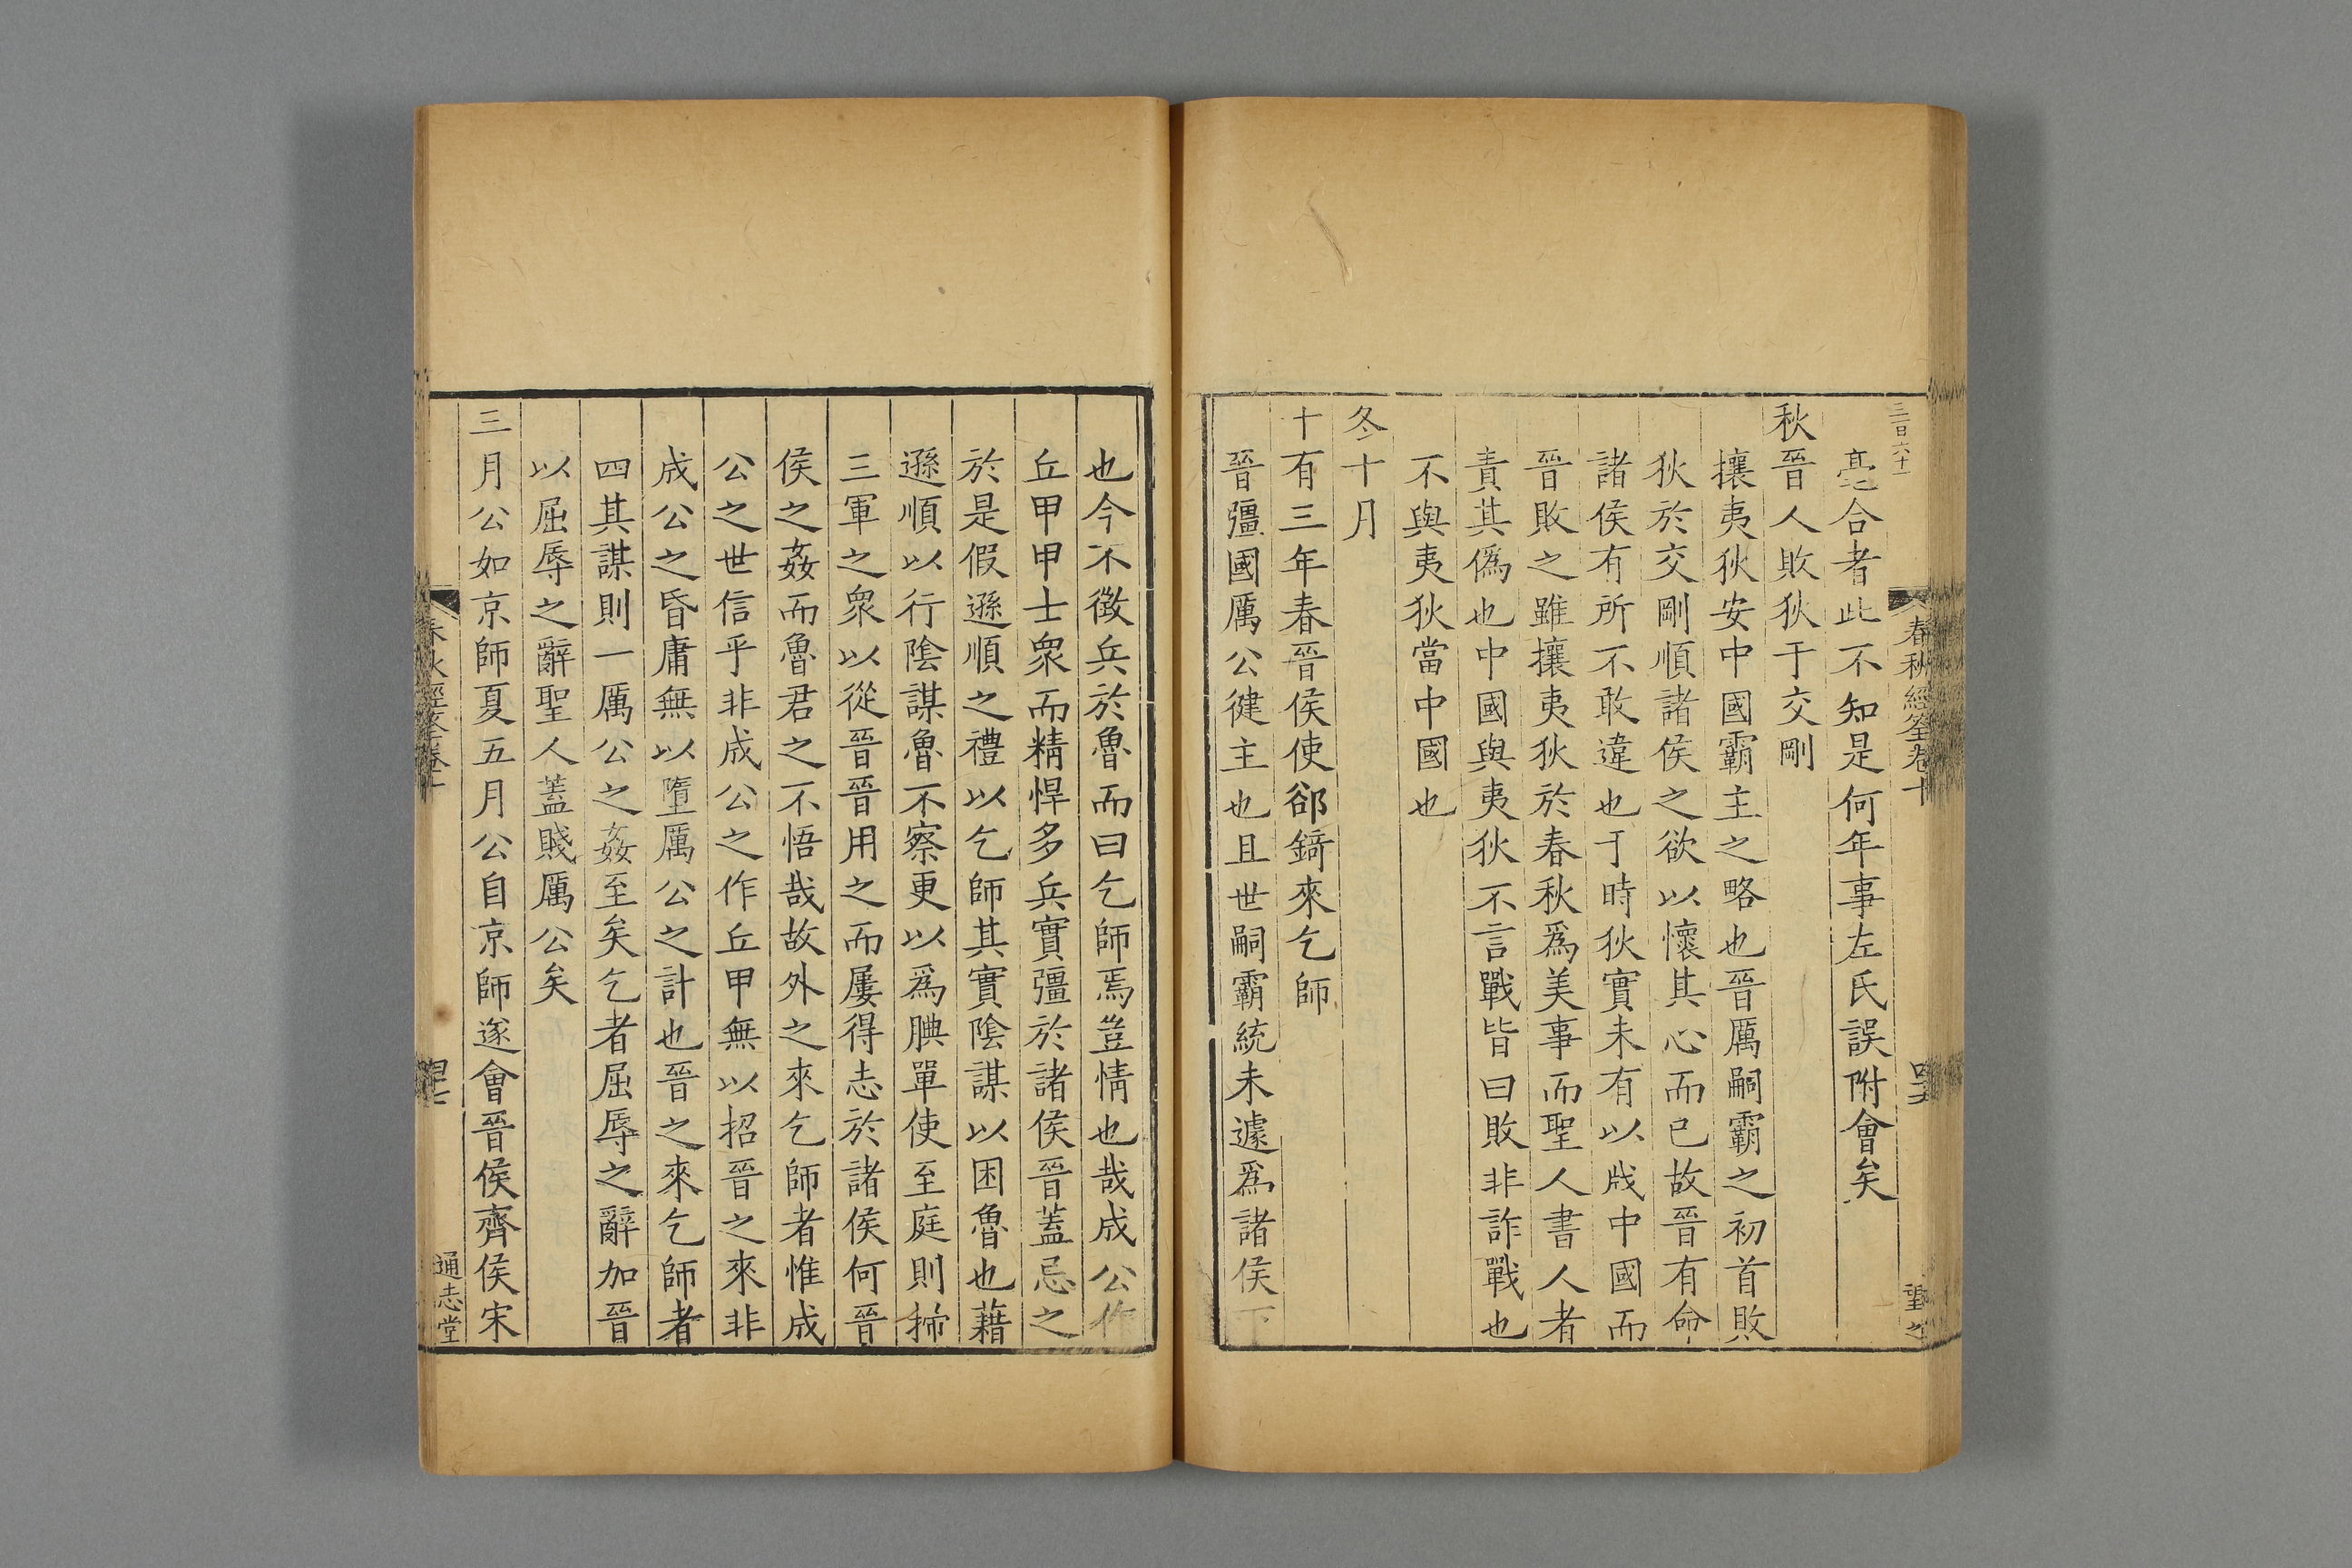 三百六十一
春秋經筌卷十
毫合者此不知是何年事左氏誤附會矣
秋晉人敗狄于交剛
攘夷狄安中國霸主之略也晉厲嗣霸之初首敗
狄於交剛順諸侯之欲以懷其心而已故晉有命
諸侯有所不敢違也于時狄實未有以戕中國而
晉敗之雖攘夷狄於春秋爲美事而聖人書人者
責其僞也中國與夷狄不言戰皆曰敗非詐戰也
不與夷狄當中國也
冬十月
十有三年春晉侯使郤錡來乞師
晉彊國厲公健主也且世嗣霸統未遽爲諸侯下
也今不徵兵於魯而曰乞師焉豈情也哉成公作
丘甲甲士衆而精悍多兵實彊於諸侯晉蓋忌之
於是假遜順之禮以乞師其實陰謀以困魯也藉
遜順以行陰謀魯不察更以爲腆單使至庭則掃
三軍之衆以從晉晉用之而屢得志於諸侯何晉
侯之姦而魯君之不悟哉故外之來乞師者惟成
公之世信乎非成公之作丘甲無以招晉之來非
成公之昏庸無以墮厲公之計也晉之來乞師者
四其謀則一厲公之姦至矣乞者屈辱之辭加晉
以屈辱之辭聖人蓋賤厲公矣
三月公如京師夏五月公自京師遂會晉侯齊侯宋
春秋經筌卷十
通志堂